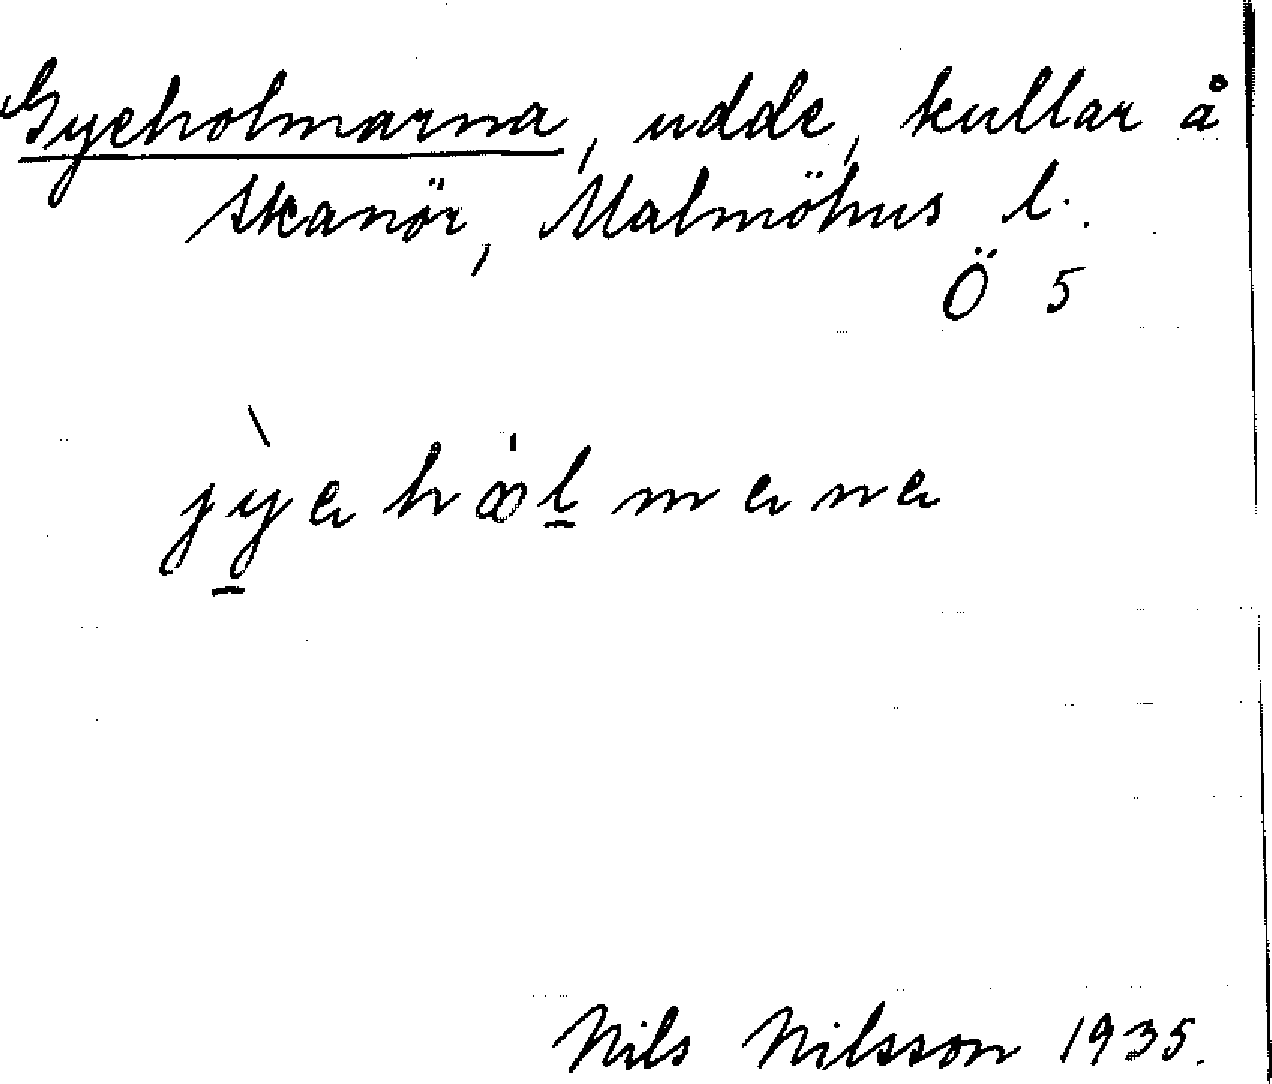 Gyeholmarna, udde, kullar å
Skanör, Malmöhus l.
Ö 5
jỳɐhꝏ́lmɐnɐ
Nils Nilsson 1935.